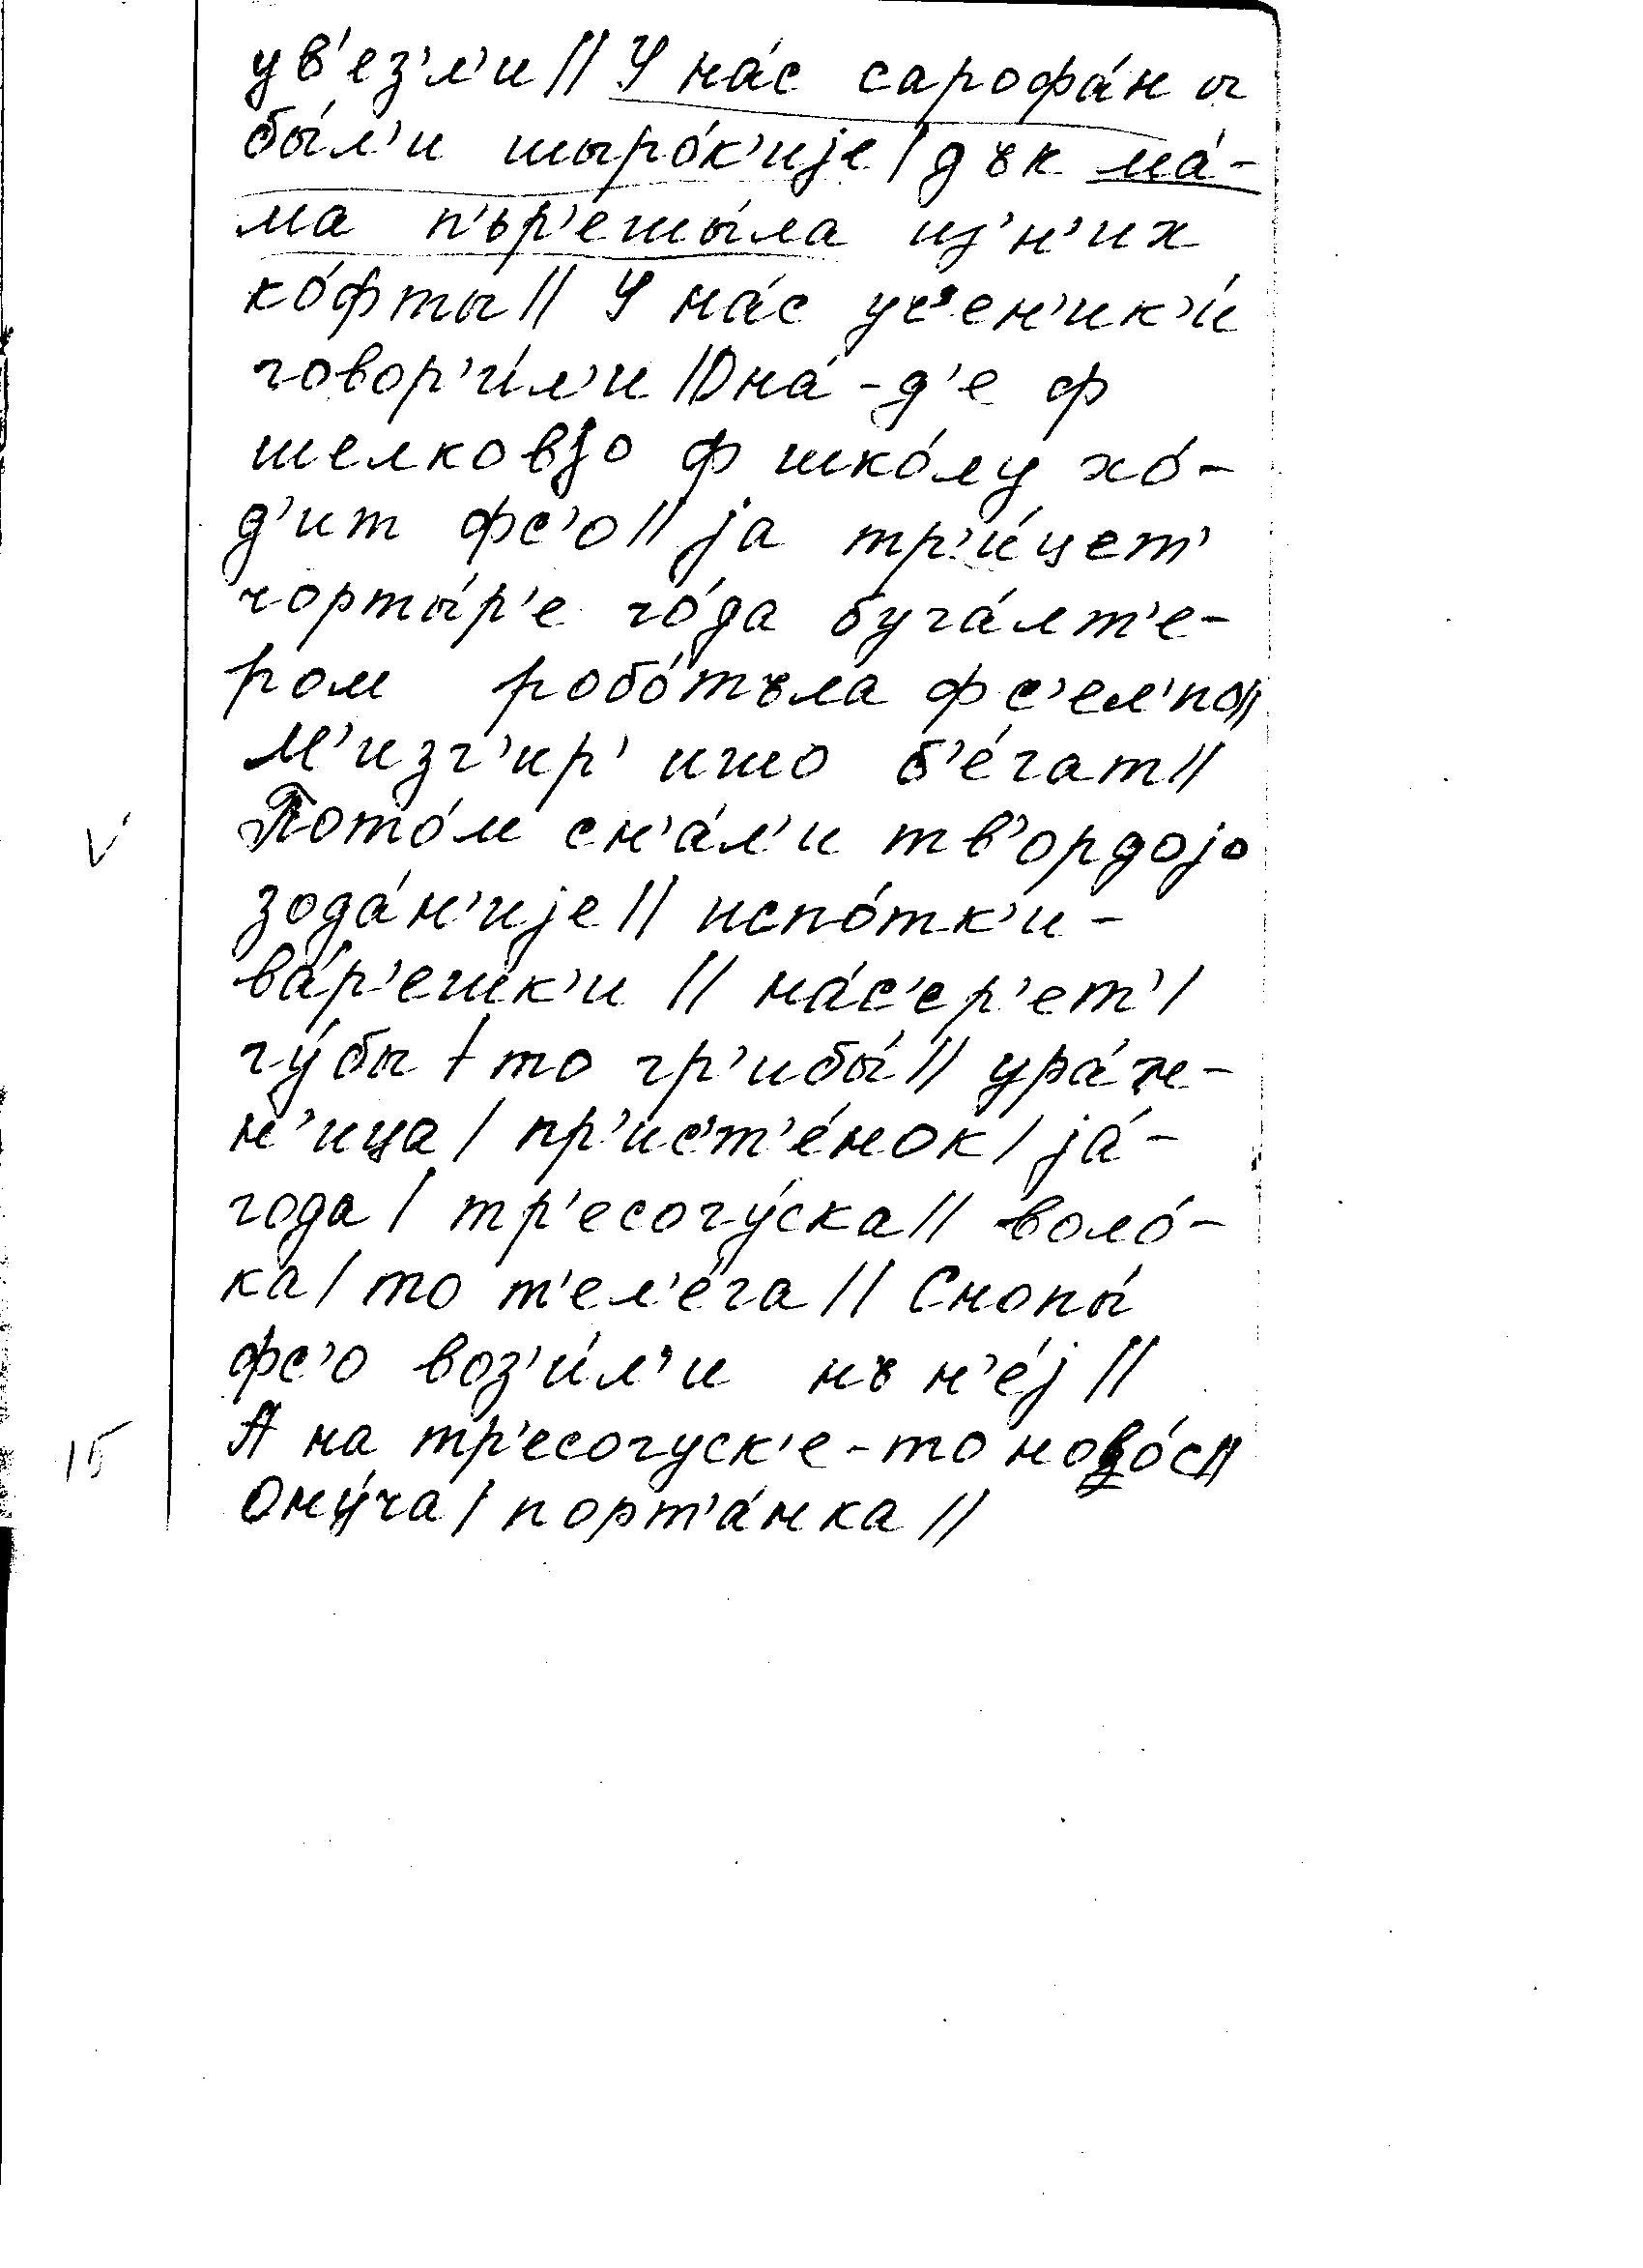 ув'ез'л'и || У на́с сарофа́ны
бы́л'и шыро́к'иjе | дък ма́-
ма п'ьр'ешы́ла из'н'их
ко́фты || У на́с ус'ен'ик'и́
говор'и́л'и | Она́-д'е ф
шелковjо ф шко́лу хо́-
д'ит фс'о || jа тр'и́цет'
чорты́р'е го́да буга́лт'е-
ром робо́тъла ф с'ел'по ||
М'изг'ир' ишо б'е́гат ||
V Пото́м сн'а́л'и тв'ордоjо
зода́н'иjе || испо́тк'и -
ва́р'ешк'и || на́с'ер'ет' |
гу́бы | то гр'ибы́ || ура́ж-
н'ица | пр'ис'т'е́нок | jа́-
года | тр'есогу́ска || воло́-
ка | то т'ел'е́га || Снопы́
фс'о воз'и́л'и нъ н'е́j ||
15 А на тр'есогуск'е-то новóс ||
Ону́ча | порт'а́нка ||